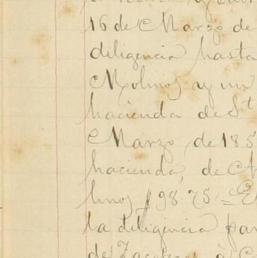 16 de Marzo de
diligencia hasta
Molino, y un
hacienda de St
Marzo, de 185
hacienda, de
lino, $98.75 =
la diligencia par
de Zacatecas á